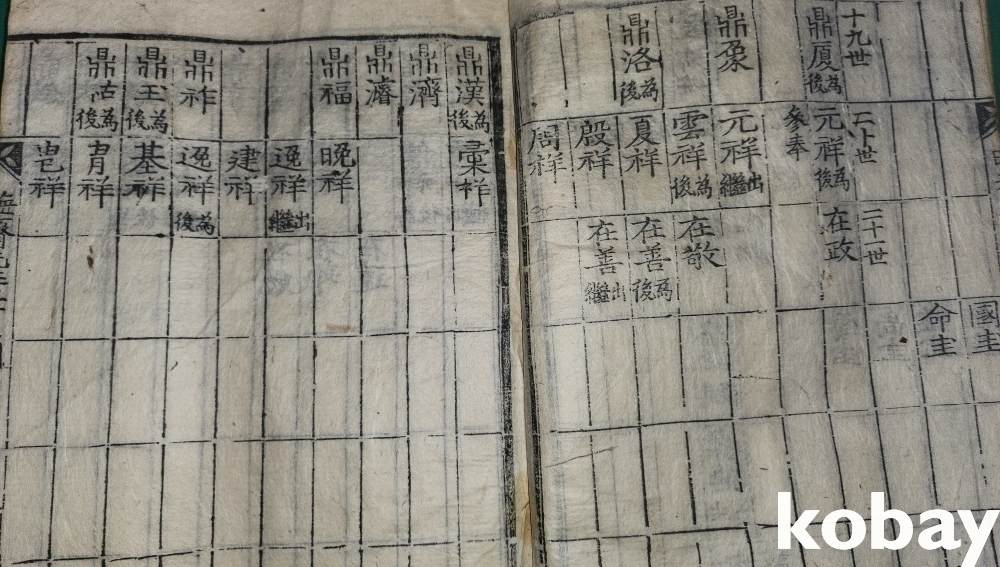 國圭
命圭
十九世
二十世
二十一世
鼎厦為後
元祥為後
在政
參奉
鼎象
元祥出繼
雲祥為後
在敬
鼎洛為後
夏祥
在善為後
殷祥
在善出繼
周祥
鼎漢為後
彙祥
鼎濟
鼎濬
鼎福
晚祥
逸祥出繼
建祥
鼎祚
逸祥為後
鼎玉為後
基祥
為後
祥
祥
kobay